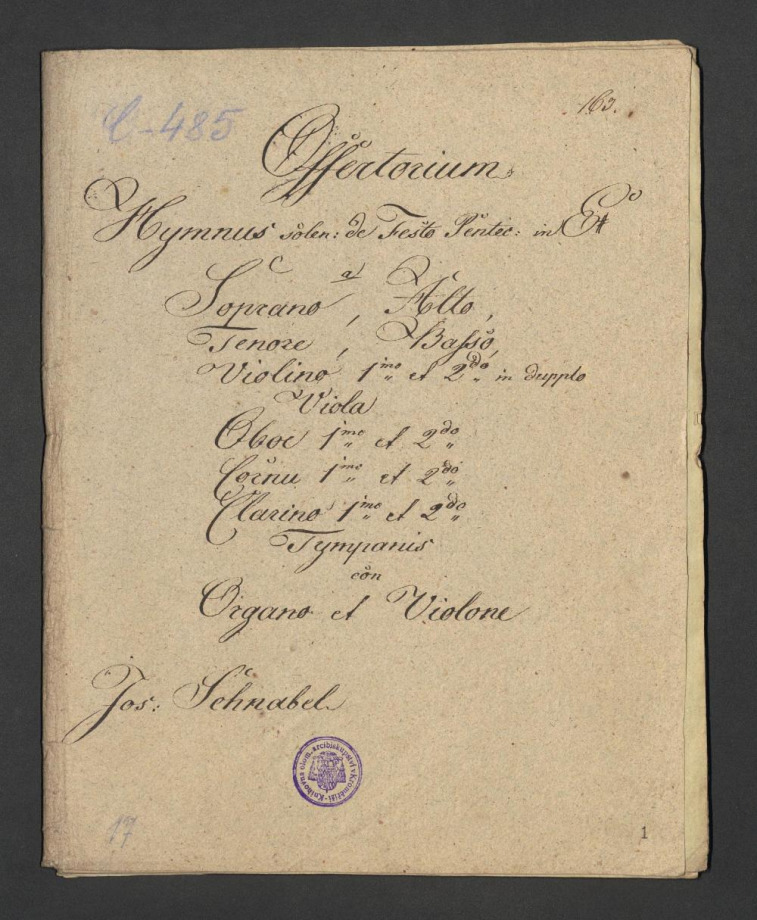 C-485
163.
Offertorium
Hymnus solen: de Festo Pentec: in E#
a
Soprano, Alto,
Tenore, Basso,
Violino 1mo et 2do in dupplo
Viola
Oboe 1mo et 2do
Cornu 1mo et 2do
Clarino 1mo et 2do
Tympanis
con
Organo et Violone
Jos: Schnabel
Knihovna olom. arcibiskupství v Kroměříži
17
1